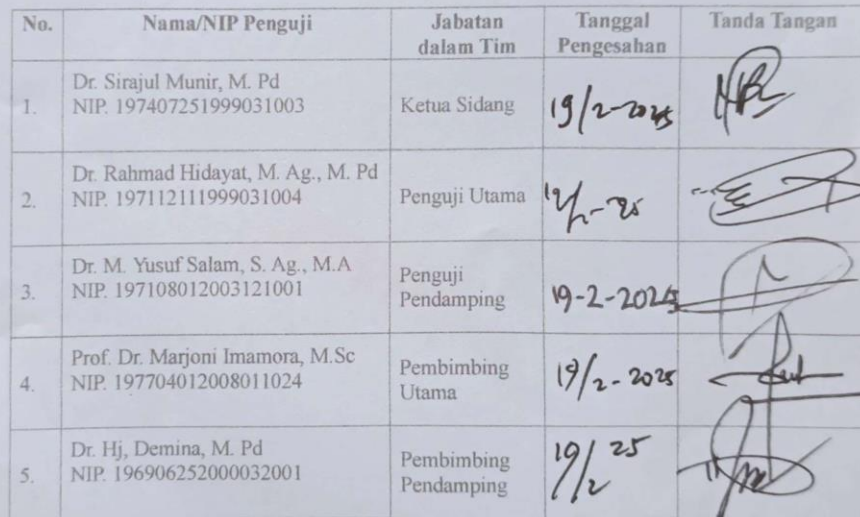 No. Nama/NIP Penguji Jabatan dalam Tim Tanggal Pengesahan Tanda Tangan
1. Dr. Sirajul Munir, M. Pd
NIP. 197407251999031003 Ketua Sidang 19/2-2025
2. Dr. Rahmad Hidayat, M. Ag., M. Pd
NIP. 197112111999031004 Penguji Utama 19/2-25
3. Dr. M. Yusuf Salam, S. Ag., M.A
NIP. 197108012003121001 Penguji Pendamping 19-2-2025
4. Prof. Dr. Marjoni Imamora, M.Sc
NIP. 197704012008011024 Pembimbing Utama 19/2-2025
5. Dr. Hj, Demina, M. Pd
NIP. 196906252000032001 Pembimbing Pendamping 19/2 25